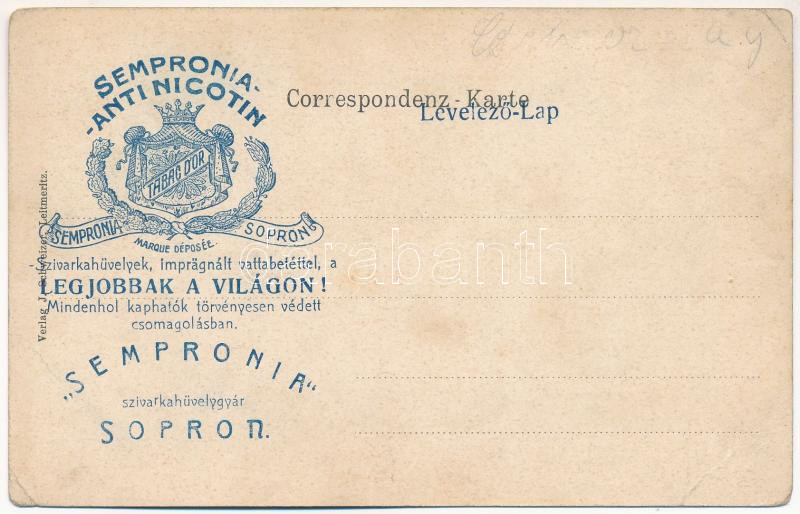 SEMPRONIA-
-ANTI NICOTIN
TABAC D'OR
SEMPRONIA SOPRON
MARQUE DÉPOSÉE.
Correspondenz-Karte
Levelező-Lap
-szivarkahüvelyek, imprägnált vattabetéttel, a
LEGJOBBAK A VILÁGON!
Mindenhol kaphatók törvényesen védett
csomagolásban.
„SEMPRONIA“
szivarkahüvelygyár
SOPRON.
Verlag J. Schweizer, Leitmeritz.
darabanth